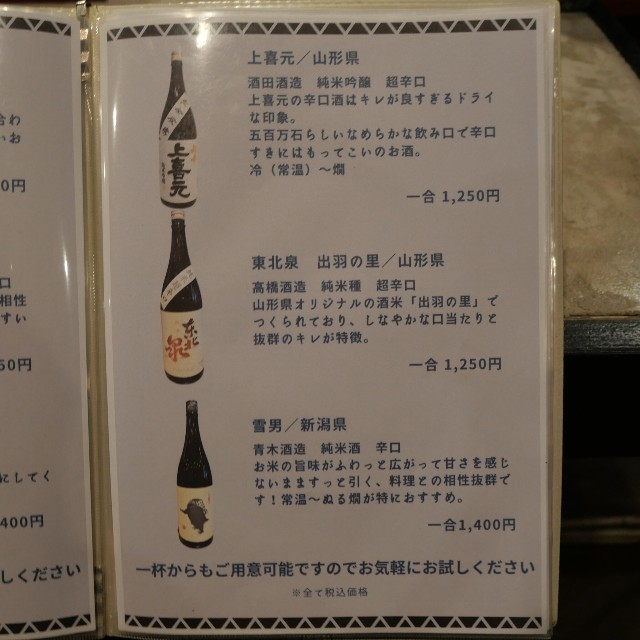 合わ
いお
0円
口
相性
すい
50円
にしてく
400円
しください
上喜元／山形県
酒田酒造　純米吟醸　超辛口
上喜元の辛口酒はキレが良すぎるドライ
な印象。
五百万石らしいなめらかな飲み口で辛口
すきにはもってこいのお酒。
冷（常温）～燗
一合 1,250円
上喜元
東北泉　出羽の里／山形県
高橋酒造　純米種　超辛口
山形県オリジナルの酒米「出羽の里」で
つくられており、しなやかな口当たりと
抜群のキレが特徴。
一合 1,250円
東北
泉
雪男／新潟県
青木酒造　純米酒　辛口
お米の旨味がふわっと広がって甘さを感じ
ないまますっと引く、料理との相性抜群で
す！常温～ぬる燗が特におすすめ。
一合1,400円
一杯からもご用意可能ですのでお気軽にお試しください
※全て税込価格